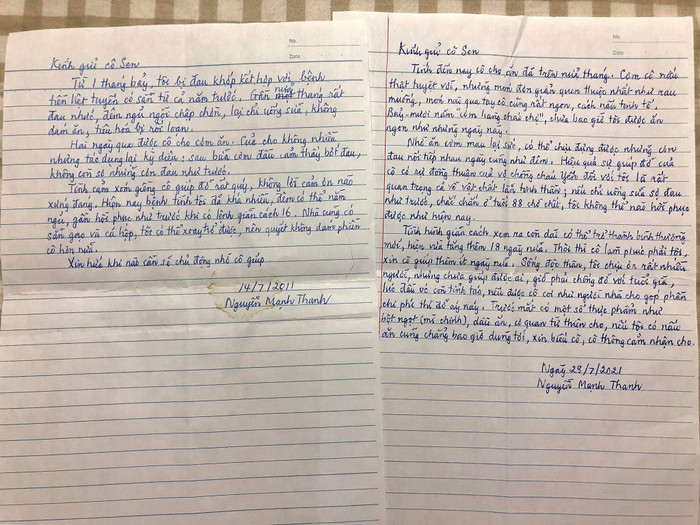 No.
Date
Kính gửi cô Sen
Từ 1 tháng bảy, tôi bị đau khớp kết hợp với bệnh
tiền liệt tuyến có sẵn từ cả năm trước. Gần nửa tháng rất
đau nhức, đêm ngủ ngồi chập chờn, lại chỉ uống sữa, không
dám ăn, tiêu hóa bị rối loạn.
Hai ngày qua được cô cho cơm ăn. Của cho không nhiều
nhưng tác dụng lại kỳ diệu: sau bữa cơm đầu cảm thấy bớt đau,
không còn sợ những cơn đau như trước.
Tình cảm xóm giềng cô giúp đỡ rất quý, không lời cảm ơn nào
xứng đáng. Hiện nay bệnh tình tôi đã khá nhiều, đêm có thể nằm
ngủ, gần hồi phục như trước khi có lệnh giãn cách 16. Nhà cũng có
sẵn gạo và cá hộp, tôi có thể xoay trở được, nên quyết không dám phiền
cô hơn nữa.
Xin hứa khi nào cần sẽ chủ động nhờ cô giúp.
14/7/2011
Nguyễn Mạnh Thanh
No.
Date
Kính gửi cô Sen
Tính đến nay cô cho ăn đã trên nửa tháng. Cơm cô nấu
thật tuyệt vời, những món đơn giản quen thuộc nhất như rau
muống, món nào qua tay cô cũng rất ngon, cách nấu tinh tế.
Bảy mươi năm "cơm hàng cháo chợ", chưa bao giờ tôi được ăn
ngon như những ngày này.
Nhờ ăn cơm mau lại sức, có thể chịu đựng được những cơn
đau nối tiếp nhau ngày cũng như đêm. Hiệu quả sự giúp đỡ của
cô có sự đồng thuận của vợ chồng cháu Yến đối với tôi là rất
quan trọng cả về vật chất lẫn tinh thần; nếu chỉ uống sữa sẽ đau
như trước, chắc chắn ở tuổi 88 chỉ chết, tôi không thể nào hồi phục
được như hiện nay.
Tình hình giãn cách xem ra còn dài có thể trở thành bình thường
mới, hiện vừa tăng thêm 18 ngày nữa. Thôi thì cô làm phúc phải tội,
xin cô giúp thêm ít ngày nữa. Sống độc thân, tôi chịu ơn rất nhiều
người, nhưng chưa giúp được ai, giờ phải chống đỡ với tuổi già,
lúc đầu vẫn còn tỉnh táo, nếu được cô coi như người nhà cho góp phần
chi phí thì đỡ áy náy. Trước mắt có một số thực phẩm như
bột ngọt (mì chính), dầu ăn, cơ quan từ thiện cho, nếu tôi có nấu
ăn cũng chẳng bao giờ dùng tới, xin biếu cô, cô thông cảm nhận cho.
Ngày 28/7/2021
Nguyễn Mạnh Thanh